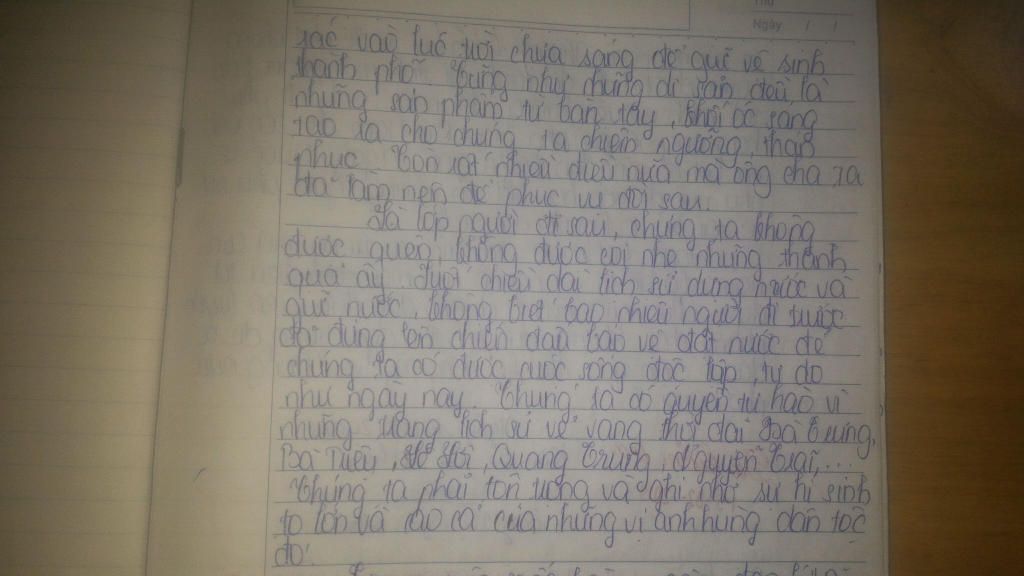 Thứ
Ngày / /
rác vào lúc trời chưa sáng để giữ vệ sinh
thành phố. Cũng như những di sản đều là
những sản phẩm từ bàn tay, khối óc sáng
tạo ra cho chúng ta chiêm ngưỡng thán
phục. Còn rất nhiều điều nữa mà ông cha ta
đã làm nên để phục vụ đời sau.
Là lớp người đi sau, chúng ta không
được quên, không được coi nhẹ những thành
quả ấy. Suốt chiều dài lịch sử dựng nước và
giữ nước, không biết bao nhiêu người đi trước
đã đứng lên chiến đấu bảo vệ đất nước để
chúng ta có được cuộc sống độc lập, tự do
như ngày nay. Chúng ta có quyền tự hào vì
những trang lịch sử vẻ vang thời đại Bà Trưng,
Bà Triệu, Lê Lợi, Quang Trung, Nguyễn Trãi,...
Chúng ta phải tôn trọng và ghi nhớ sự hi sinh
to lớn và cao cả của những vị anh hùng dân tộc
đó.